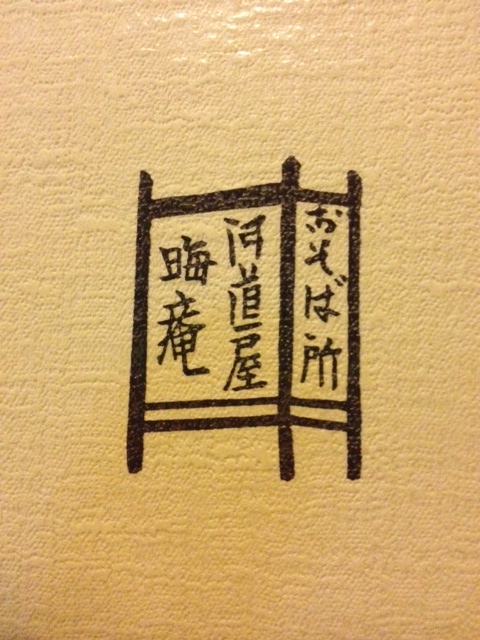 おそば所
河道屋
晦庵